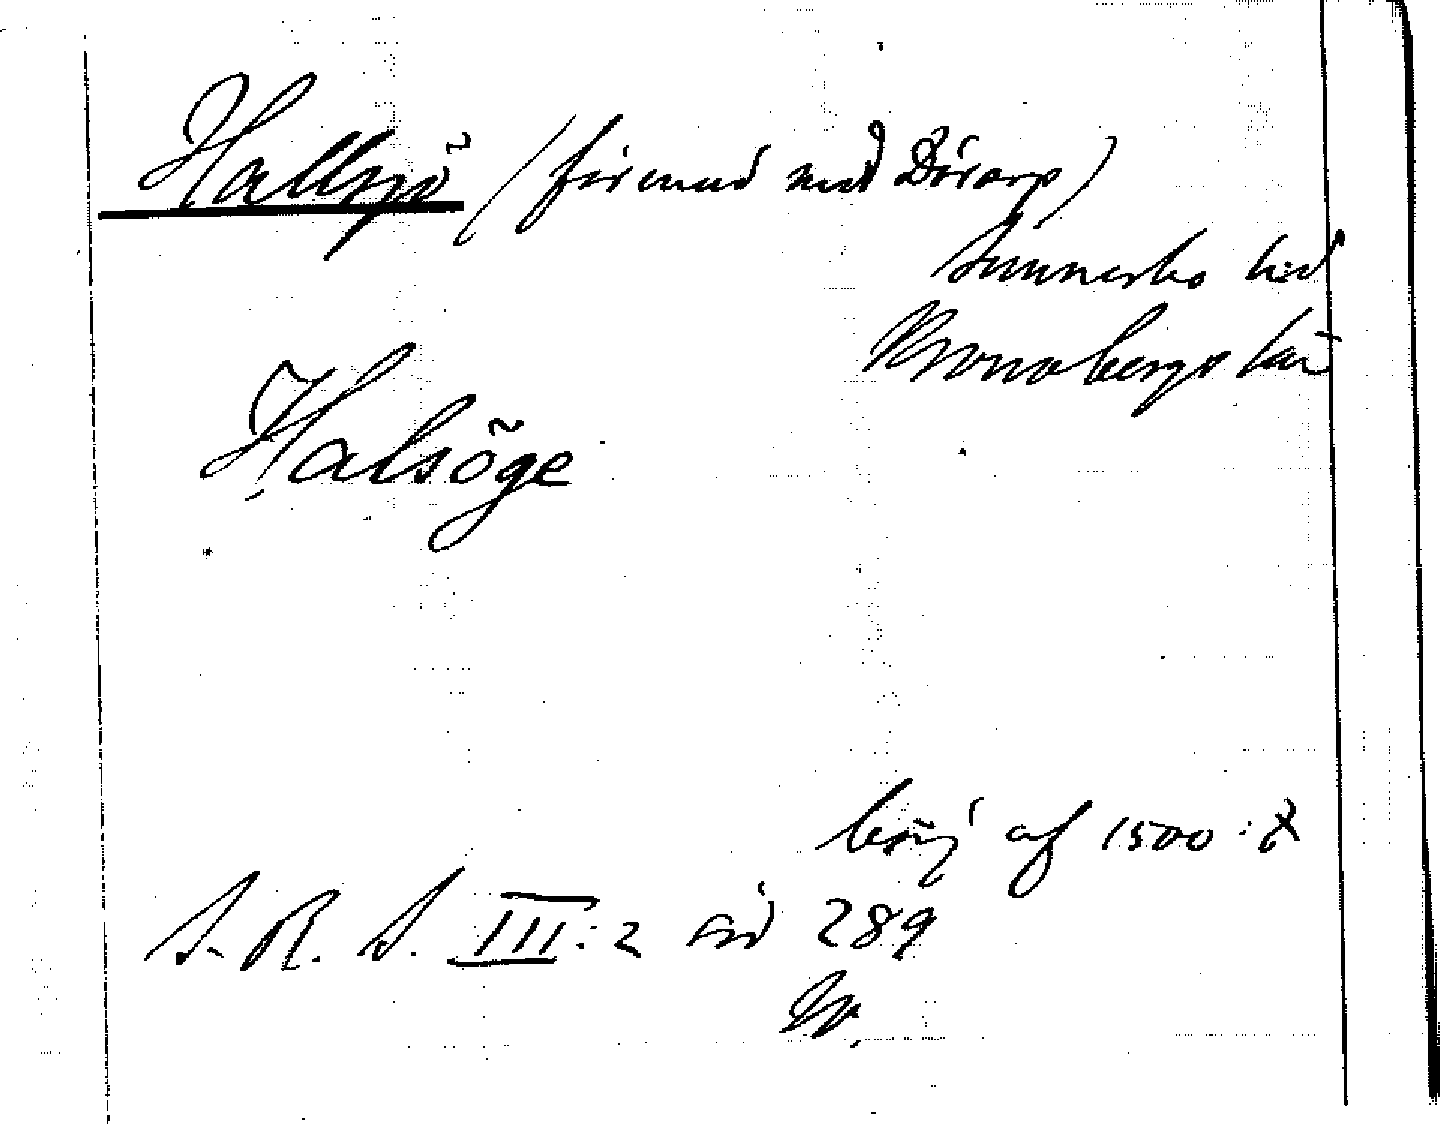 Hallsjö (förenad med Dörarp)
Sunnerbo hd
Kronobergs län
Halsöge
börj af 1500:t
S. R. S. III:2 sid 289